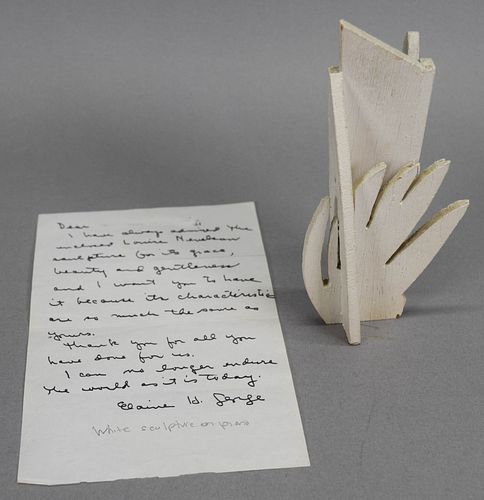 Dear
I have always admired the
enclosed Louise Nevelson
sculpture for its grace,
beauty and gentleness
and I want you to have
it because its characteristics
are as much the same as
yours.
Thank you for all you
have done for us.
I can no longer endure
the world as it is today.
Elaine H. George
White sculpture on piano